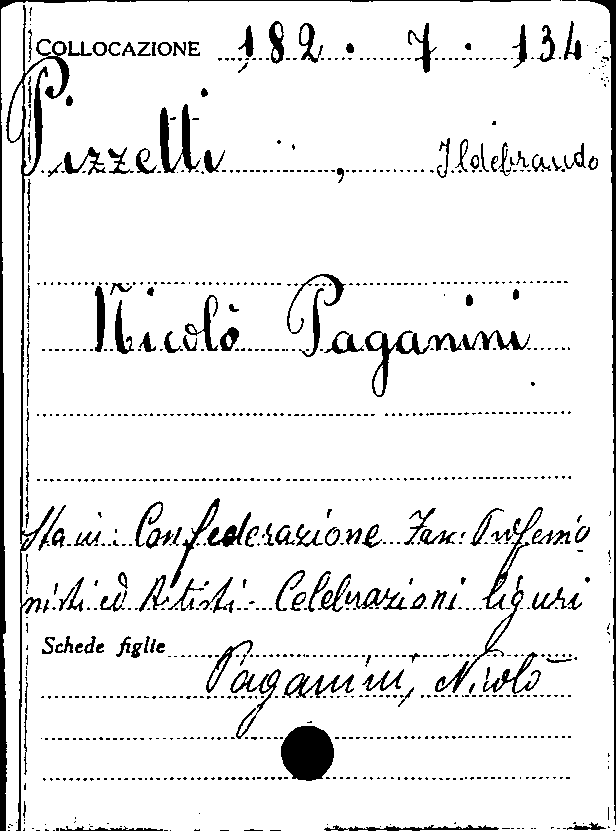 COLLOCAZIONE 182 . 7 . 134
Pizzetti , Ildebrando
Nicolò Paganini
Sta in: Confederazione Fasc. Professio
nisti ed Artisti - Celebrazioni liguri
Schede figlie
Paganini, Nicolò